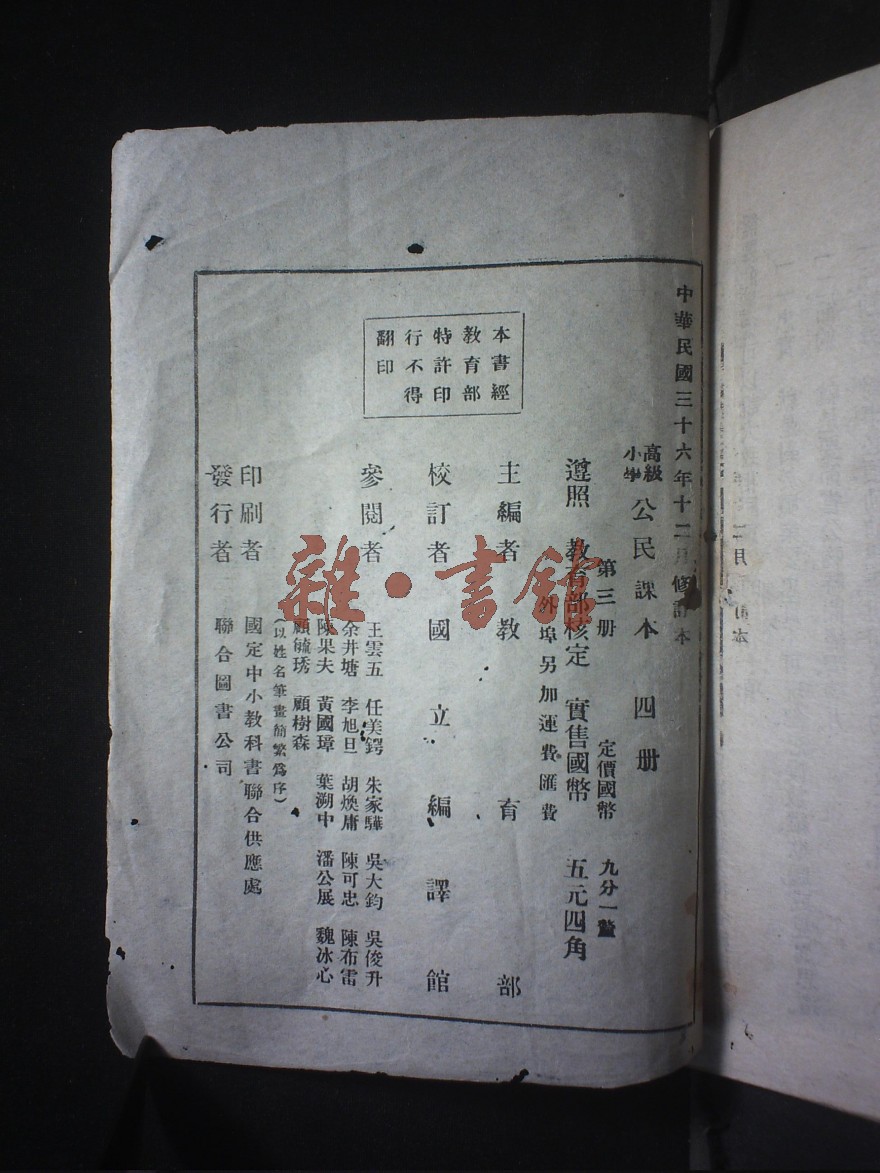 中華民國三十六年十二月修訂本
高級
小學
公民課本 四册
第三册 定價國幣 九分一釐
遵照 教育部核定 實售國幣 五元四角
外埠另加運費匯費
本書經
教育部
特許印
行不得
翻印
主編者 教育部
校訂者 國立編譯館
參閱者
王雲五 任美鍔 朱家驊 吳大鈞 吳俊升
余井塘 李旭旦 胡煥庸 陳可忠 陳布雷
陳果夫 黃國璋 葉溯中 潘公展 魏冰心
顧毓琇 顧樹森
(以姓名筆畫簡繁爲序)
印刷者 國定中小教科書聯合供應處
發行者 聯合圖書公司
雜·書館